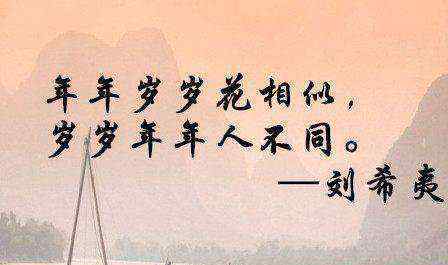 年年岁岁花相似，
岁岁年年人不同。
—刘希夷